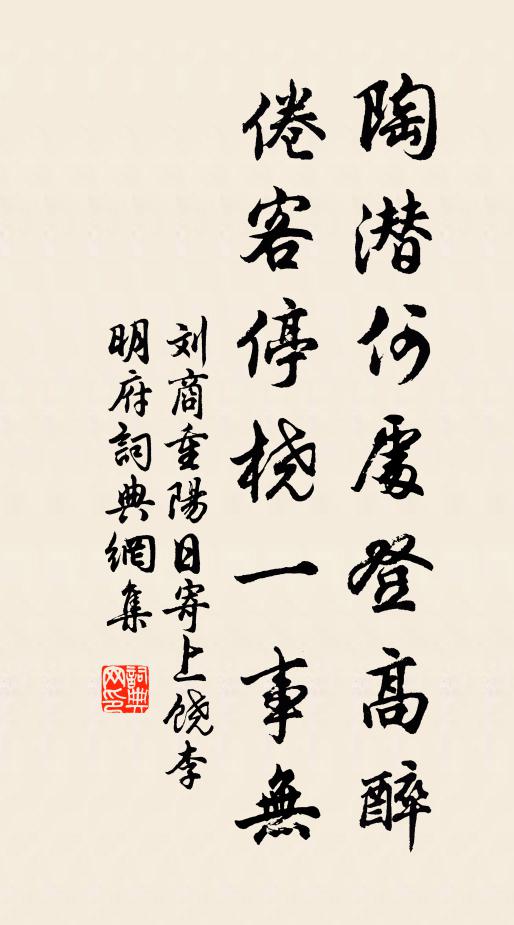 陶潜何處登高醉
倦客停桡一事無
刘商重陽日寄上饶李
明府詞典網集
詞典
网印